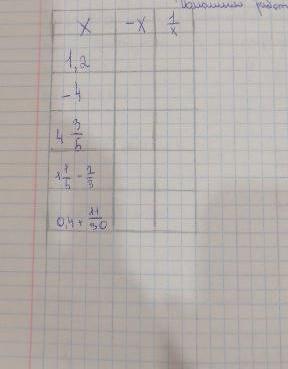 Домашняя работ
x -x 1/x
1,2
-4
4 3/5
1 1/5 - 2/3
0,4 + 11/30